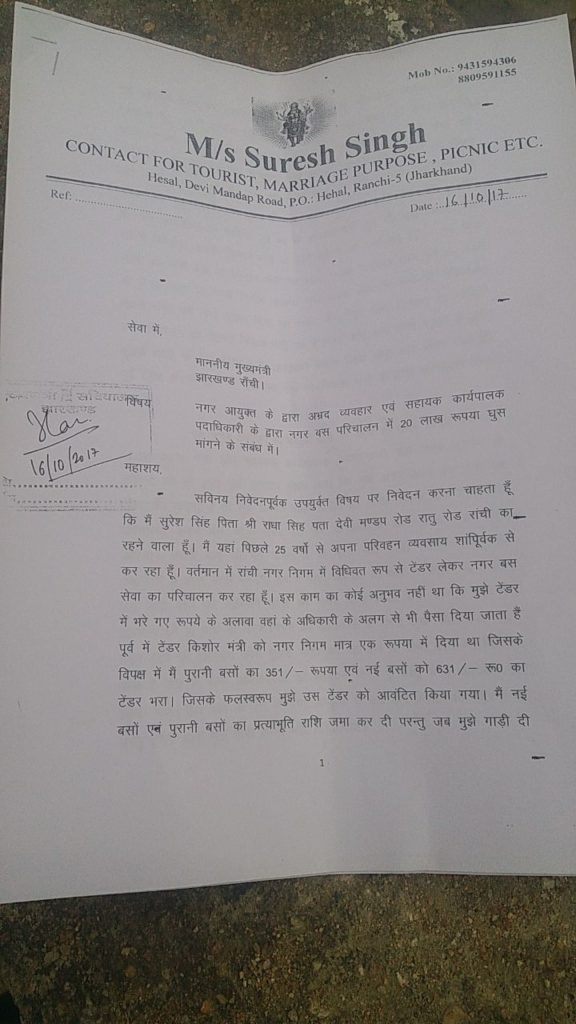 Mob No.: 9431594306
8809591155
M/s Suresh Singh
CONTACT FOR TOURIST, MARRIAGE PURPOSE , PICNIC ETC.
Hesal, Devi Mandap Road, P.O.: Hehal, Ranchi-5 (Jharkhand)
Ref: ................................
Date :..16/10/17......
सेवा में,
माननीय मुख्यमंत्री
झारखण्ड राँची।
झारखण्ड
16/10/2017
विषय
नगर आयुक्त के द्वारा अभ्रद व्यवहार एवं सहायक कार्यपालक
पदाधिकारी के द्वारा नगर बस परिचालन में 20 लाख रूपया घुस
मांगने के संबंध में।
महाशय,
सविनय निवेदनपूर्वक उपर्युक्त विषय पर निवेदन करना चाहता हूँ
कि मैं सुरेश सिंह पिता श्री राधा सिंह पता देवी मण्डप रोड रातु रोड रांची का
रहने वाला हूँ। मैं यहां पिछले 25 वर्षो से अपना परिवहन व्यवसाय शांपिूर्वक से
कर रहा हूँ। वर्तमान में रांची नगर निगम में विधिवत रूप से टेंडर लेकर नगर बस
सेवा का परिचालन कर रहा हूँ। इस काम का कोई अनुभव नहीं था कि मुझे टेंडर
में भरे गए रूपये के अलावा वहां के अधिकारी के अलग से भी पैसा दिया जाता हैं
पूर्व में टेंडर किशोर मंत्री को नगर निगम मात्र एक रूपया में दिया था जिसके
विपक्ष में मैं पुरानी बसों का 351/– रूपया एवं नई बसों को 631/– रू0 का
टेंडर भरा। जिसके फलस्वरूप मुझे उस टेंडर को आवंटित किया गया। मैं नई
बसों एवं पुरानी बसों का प्रत्याभूति राशि जमा कर दी परन्तु जब मुझे गाड़ी दी
1